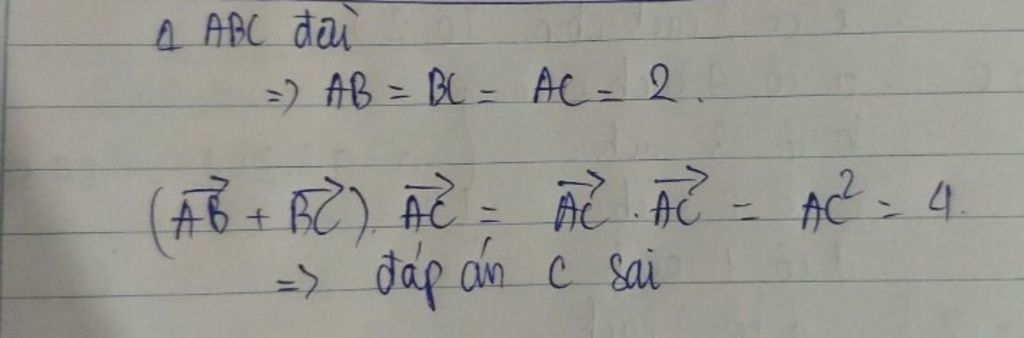 Δ ABC đều
=> AB = BC = AC = 2.
(\overrightarrow{AB} + \overrightarrow{BC}). \overrightarrow{AC} = \overrightarrow{AC} . \overrightarrow{AC} = AC² = 4.
=> đáp án C sai